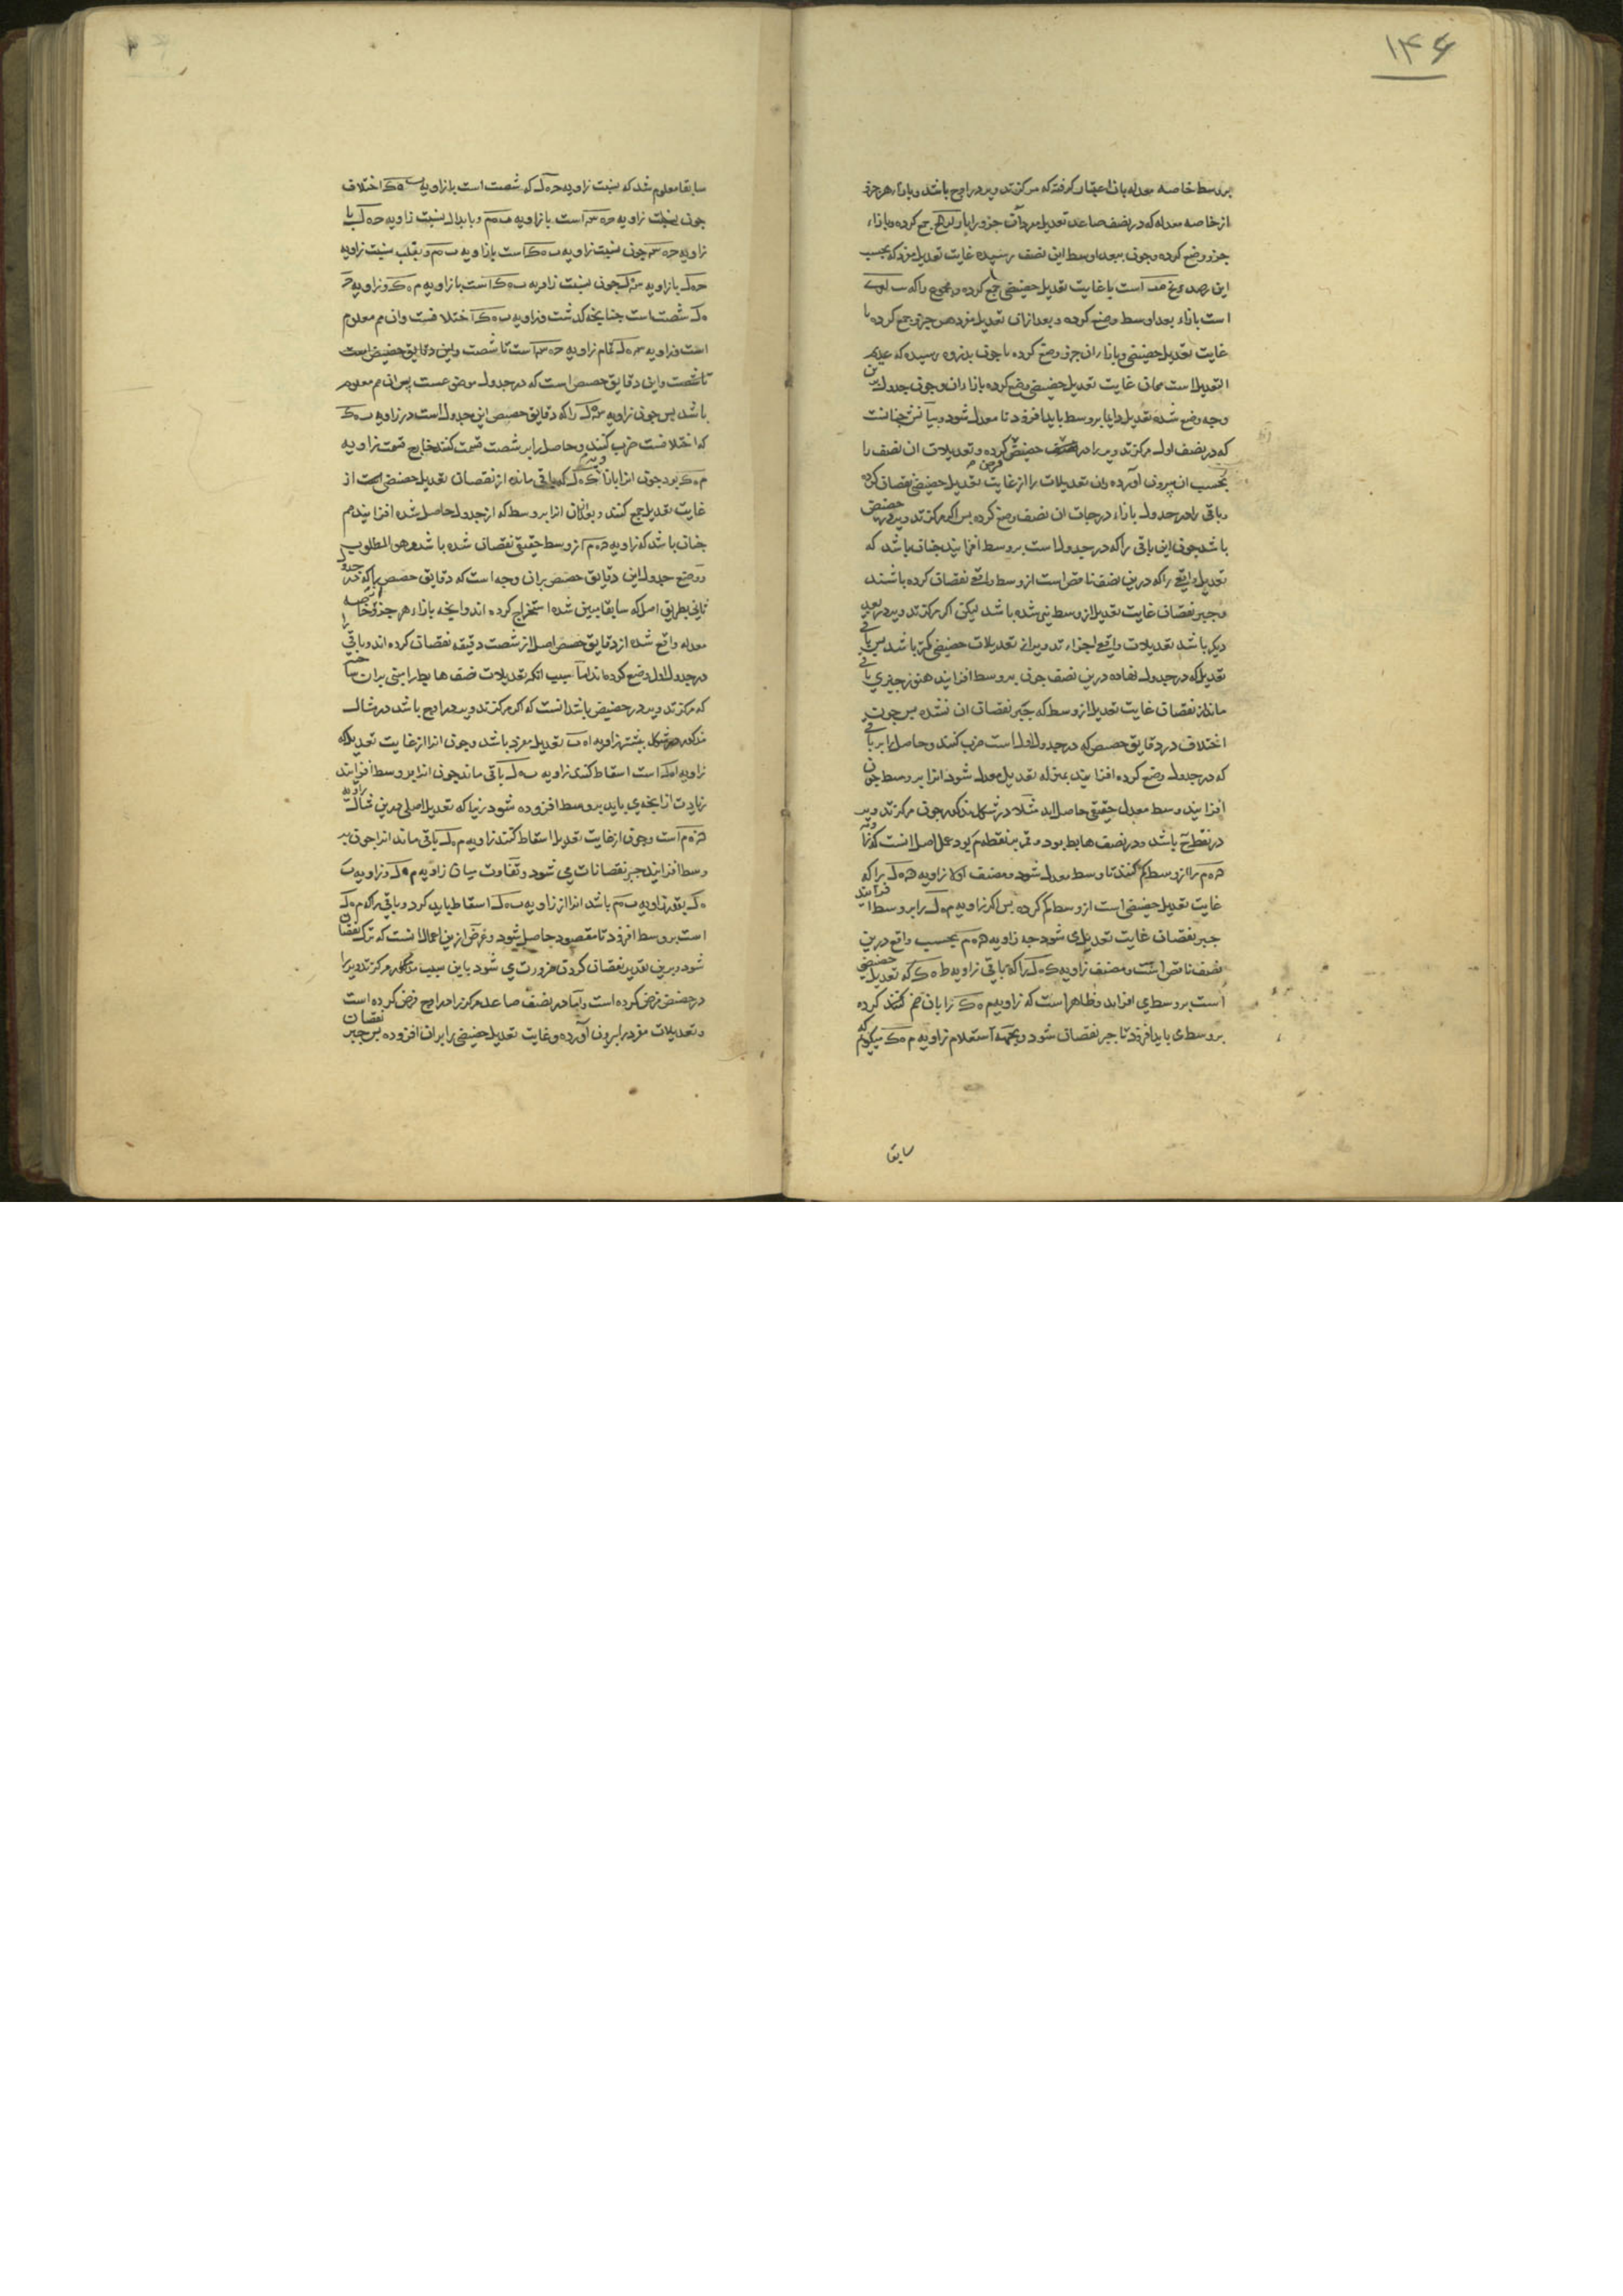 ۱۴۶
بر وسط خاصه معدله بان اعتبار کرفته که مرکز تدویر در اوج باشد و بازاء هر جزو
از خاصه معدله که در نصف صاعد تعدیل مفرد آن جزو را با جمع کرده و بازاء
جزو وضع کرده و چون ببعد اوسط این نصف رسیده غایت تعدیل مفرد که بحسب
این رصد است با غایت تعدیل حضیضی جمع کرده و مجموع را که
است بازاء بعد اوسط وضع کرده و بعد ازان تعدیل مفرد هر جزو جمع کرده با
غایت تعدیل حضیضی و بازاء ان جزو وضع کرده تا چون بذروه رسیده که عدیم
التعدیل است همان غایت تعدیل حضیضی وضع کرده بازاء ان و چون جدول برین
وجه وضع شده تعدیل دایما بر وسط باید افزود تا معدل شود و بیانش چنانست
که در نصف اول مرکز تدویر را در حضیض فرض کرده و تعدیلات ان نصف را
بحسب ان بیرون آورده و ان تعدیلات را از غایت تعدیل حضیضی نقصان کرده
و باقی را در جدول بازاء درجات ان نصف وضع کرده پس اکر مرکز تدویر در حضیض
باشد چون این باقی را که در جدول است بر وسط افزایند چنان باشد که
تعدیل واقعی را که درین نصف ناقص است از وسط واقعی نقصان کرده باشند
و جبر نقصان غایت تعدیل از وسط نیز شده باشد لیکن اکر مرکز تدویر در بعد
دیکر باشد تعدیلات واقعی اجزاء تدویر از تعدیلات حضیضی کمتر باشد پس باقی
تعدیل که در جدول نهاده درین نصف چون بر وسط افزایند هنوز چیزی باقی
ماند از نقصان غایت تعدیل از وسط که جبر نقصان ان نشده پس چون
اختلاف در دقایق حصص که در جدول اول است ضرب کنند و حاصل را بر باقی
که در جدول وضع کرده افزایند بمنزله تعدیل معدل شود انرا بر وسط چون
افزایند وسط معدل حقیقی حاصل اید مثلا در شکل مذکور چون مرکز تدویر
در نقطه ح باشد و در نصف هابط بود و قمر بنقطه م بود عمل اصل انست که زاویه
ح ه م را از وسط کم کنند تا وسط معدل شود و مصنف اولا زاویه ح ه ک را که
غایت تعدیل حضیضی است از وسط کم کرده پس اکر زاویه م ه ک را بر وسط افزایند
جبر نقصان غایت تعدیل شود چه زاویه ح ه م بحسب واقع درین
نصف ناقص است و مصنف زاویه را که باقی زاویه که تعدیل حضیضی
است بر وسط می افزاید و ظاهر است که زاویه م ه ک را بان ضم کنند کرده
بر وسط می باید افزود تا جبر نقصان شود و بجهة استعلام زاویه م ه ک میکوئیم که
سابقا
سابقا معلوم شد که نسبت زاویه ح ه ک که شصت است با زاویه ب ه ک اختلاف
چون نسبت زاویه ح ه س است با زاویه ب ه م و بابدال نسبت زاویه ح ه ک با
زاویه ح ه س چون نسبت زاویه ب ه ک است با زاویه ب ه م و بقلب نسبت زاویه
ح ه ک با زاویه س ه ک چون نسبت زاویه ب ه ک است با زاویه م ه ک و زاویه ح
ه ک شصت است چنانچه کذشت و زاویه ب ه ک اختلافست و ان هم معلوم
است و زاویه س ه ک تمام زاویه ح ه س است تا شصت و این دقایق حضیض است
تا شصت و این دقایق حصص است که در جدول موضوعست پس ان هم معلوم
باشد پس چون زاویه س ه ک را که دقایق حصص این جدول است در زاویه ب ه ک
که اختلافست ضرب کنند و حاصل را بر شصت قسمت کنند خارج قسمت زاویه
م ه ک بود چون انرا با زاویه که باقی مانده از نقصان تعدیل حضیضی است از
غایت تعدیل جمع کنند و بعد ازان انرا بر وسط که از جدول حاصل شده افزایند هم
چنان باشد که زاویه ح ه م از وسط حقیقی نقصان شده باشد و هو المطلوب
و وضع جدول این دقایق حصص بران وجه است که دقایق حصص را که در جدول
ثانی بطریق اصل که سابقا مبین شده استخراج کرده اند و انچه بازاء هر جزو خاصه
معدله واقع شده از دقایق حصص اصل از شصت دقیقه نقصان کرده اند و باقی را
در جدول اول وضع کرده اند اما سبب انکه تعدیلات نصف هابط را مبنی بران حساب
که مرکز تدویر در حضیض باشد انست که اکر مرکز تدویر در اوج باشد در مثال
مذکور در شکل پیشتر زاویه ا ه ب تعدیل مفرد باشد و چون انرا از غایت تعدیل که
زاویه است اسقاط کنند زاویه ب ه ک باقی ماند چون انرا بر وسط افزایند
زیادت از انچه می باید بر وسط افزوده شود زیرا که تعدیل اصلی درین مثال زاویه
ح ه م است و چون از غایت تعدیل اسقاط کنند زاویه م ه ک باقی ماند انرا چون بر
وسط افزایند جبر نقصانات می شود و تفاوت میان زاویه م ه ک و زاویه ب
ه ک بقدر زاویه ب ه م باشد انرا از زاویه ب ه ک اسقاط باید کرد و باقی را که م ه ک
است بر وسط افزود تا مقصود حاصل شود و غرض ازین اعمال انست که ترک نقصان
شود و برین تقدیر نقصان کردن ضرورت می شود باین سبب مذکور مرکز تدویر را
در حضیض فرض کرده است و اما در نصف صاعد مرکز را در اوج فرض کرده است
و تعدیلات مفرد را بیرون آورده و غایت تعدیل حضیضی را بران افزوده پس جبر نقصان